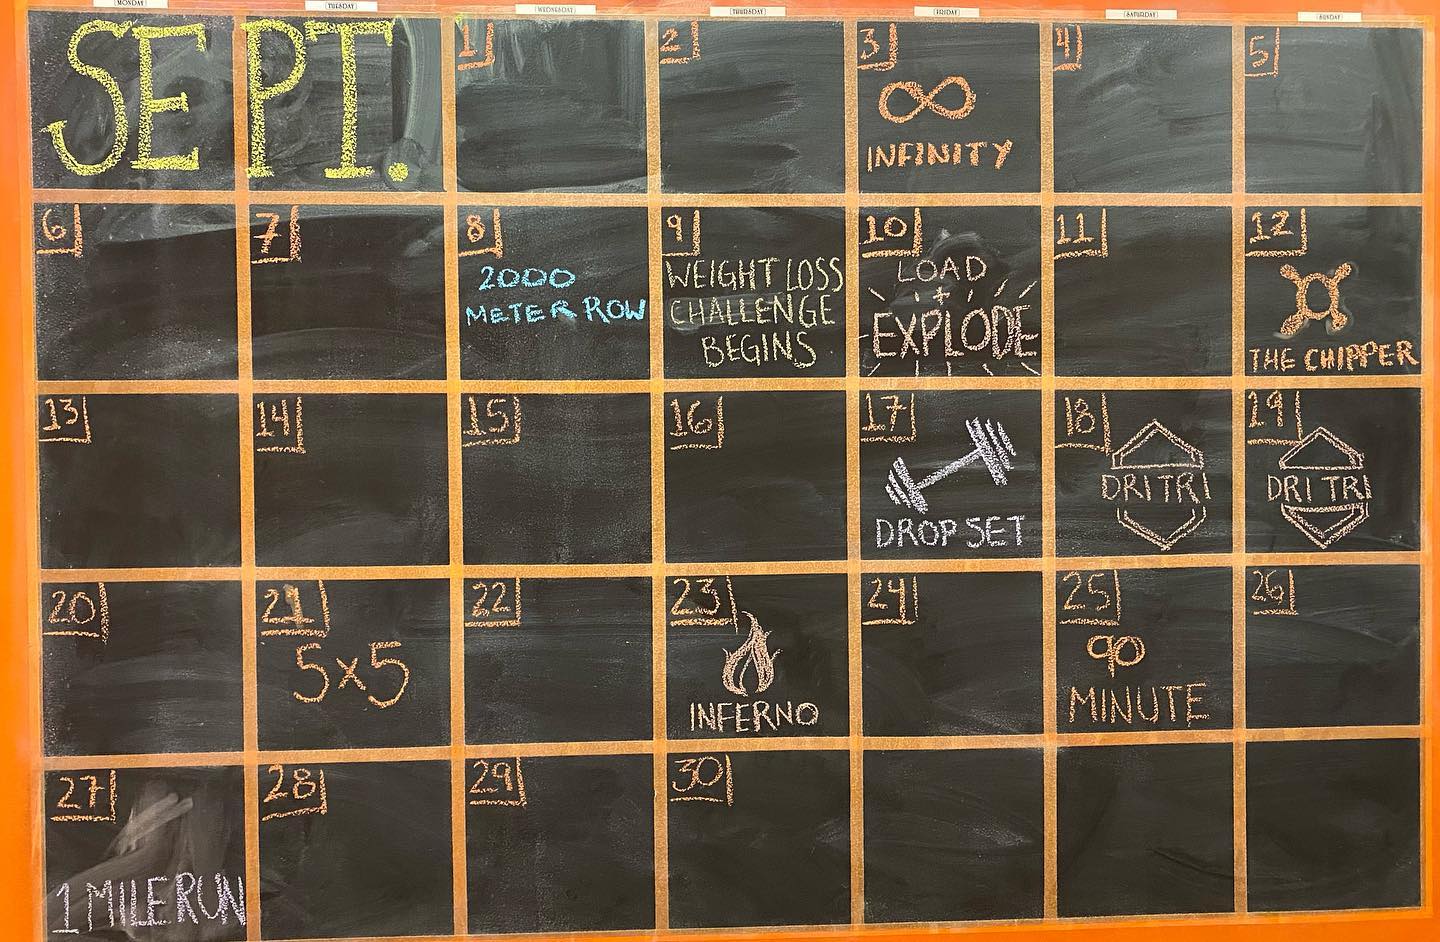 MONDAY TUESDAY WEDNESDAY THURSDAY FRIDAY SATURDAY SUNDAY
SEPT.
1
2
3
INFINITY
4
5
6
7
8
2000
METER ROW
9
WEIGHT LOSS
CHALLENGE
BEGINS
10
LOAD
+
EXPLODE
11
12
THE CHIPPER
13
14
15
16
17
DROP SET
18
DRI TRI
19
DRI TRI
20
21
5x5
22
23
INFERNO
24
25
90
MINUTE
26
27
1 MILE RUN
28
29
30